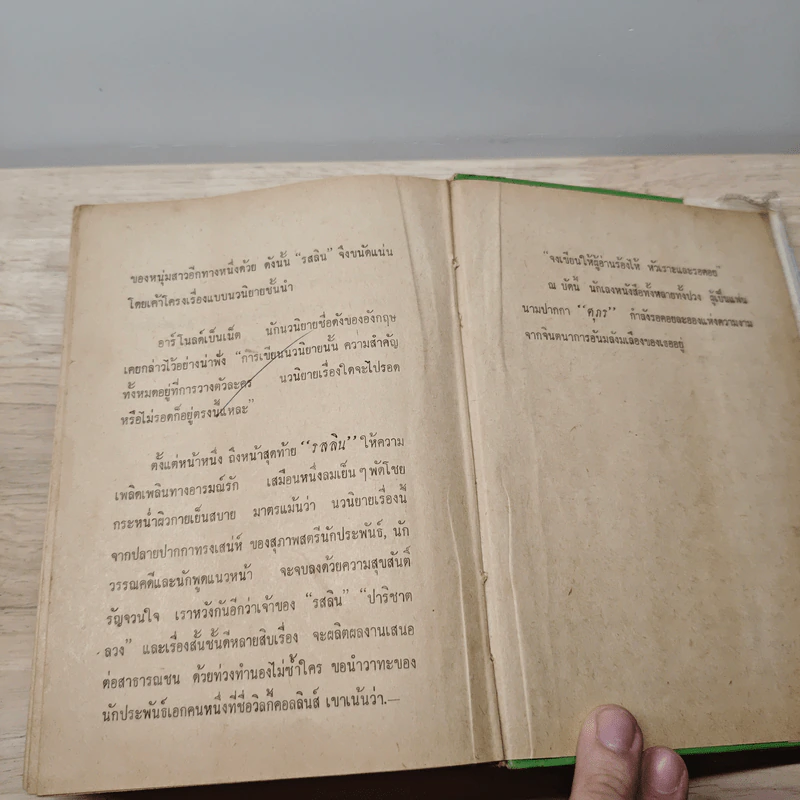 ของหนุ่มสาวอีกทางหนึ่งด้วย ดังนั้น "รสลิน" จึงขนัดแน่น
โดยเค้าโครงเรื่องแบบนวนิยายชั้นนำ
อาร์โนลด์เบ็นเน็ต นักนวนิยายชื่อดังของอังกฤษ
เคยกล่าวไว้อย่างน่าฟัง "การเขียนนวนิยายนั้น ความสำคัญ
ทั้งหมดอยู่ที่การวางตัวละคร นวนิยายเรื่องใดจะไปรอด
หรือไม่รอดก็อยู่ตรงนี้แหละ"
ตั้งแต่หน้าหนึ่ง ถึงหน้าสุดท้าย "รสลิน" ให้ความ
เพลิดเพลินทางอารมณ์รัก เสมือนหนึ่งลมเย็น ๆ พัดโชย
กระหน่ำผิวกายเย็นสบาย มาตรแม้นว่า นวนิยายเรื่องนี้
จากปลายปากกาทรงเสน่ห์ ของสุภาพสตรีนักประพันธ์, นัก
วรรณคดีและนักพูดแนวหน้า จะจบลงด้วยความสุขสันติ์
รัญจวนใจ เราหวังกันอีกว่าเจ้าของ "รสลิน" "ปาริชาต
ลวง" และเรื่องสั้นชั้นดีหลายสิบเรื่อง จะผลิตผลงานเสนอ
ต่อสาธารณชน ด้วยท่วงทำนองไม่ซ้ำใคร ขอนำวาทะของ
นักประพันธ์เอกคนหนึ่งที่ชื่อวิลกี้คอลลินส์ เขาเน้นว่า.—
"จงเขียนให้ผู้อ่านร้องไห้ หัวเราะและรอคอย"
ณ บัดนี้ นักเลงหนังสือทั้งหลายทั้งปวง ผู้เป็นแฟน
นามปากกา "ดุภร" กำลังรอคอยละอองแห่งความงาม
จากจินตนาการอันมลังมเลืองของเธออยู่